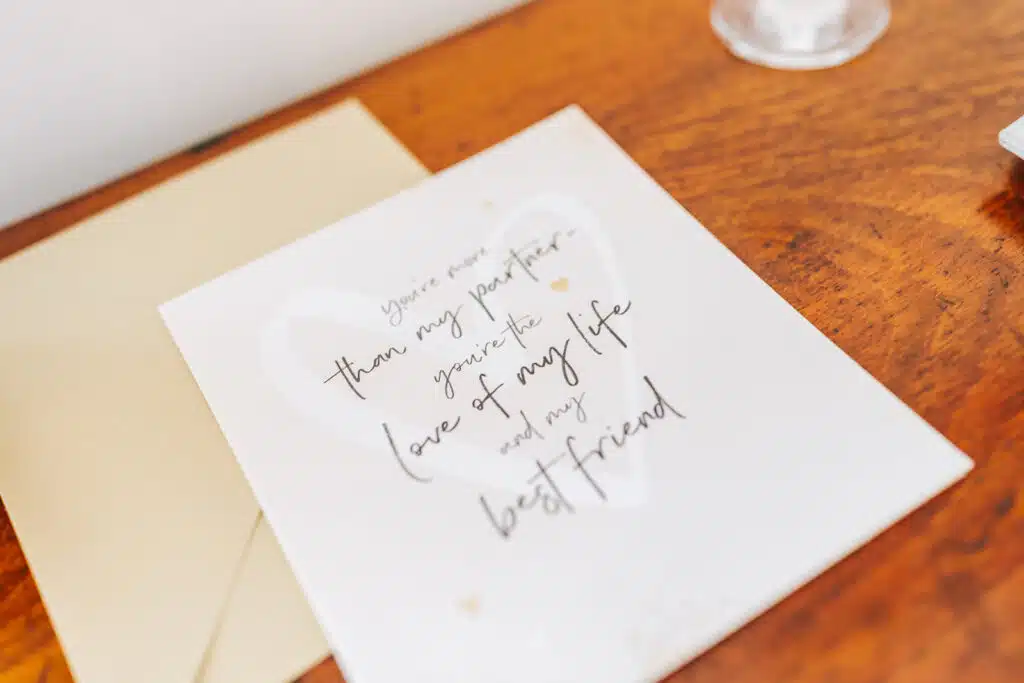 you're more
than my partner-
you're the
love of my life
and my
best friend